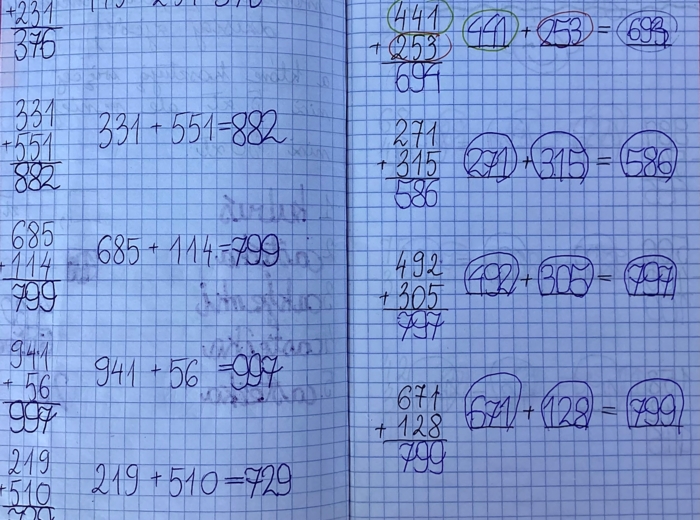 +231
376
331
+551
882
331 + 551 = 882
685
+114
799
685 + 114 = 799
941
+ 56
997
941 + 56 = 997
219
+510
729
219 + 510 = 729
441
+ 253
694
441 + 253 = 693
271
+ 315
586
271 + 315 = 586
492
+ 305
797
492 + 305 = 797
671
+ 128
799
671 + 128 = 799